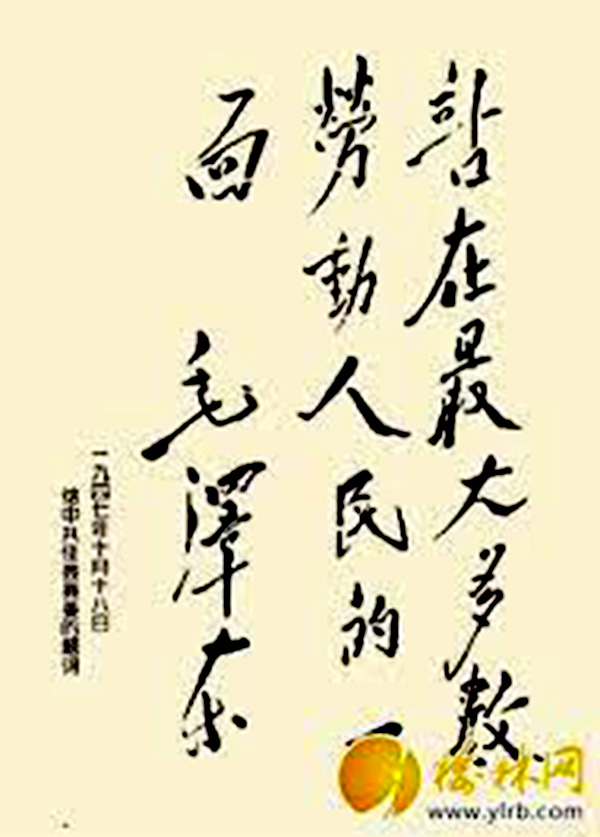 站在最大多數
勞動人民的一
面 毛澤东
一九四七年十月十八日
给中共佳县县委的题词
榆林网
www.ylrb.com